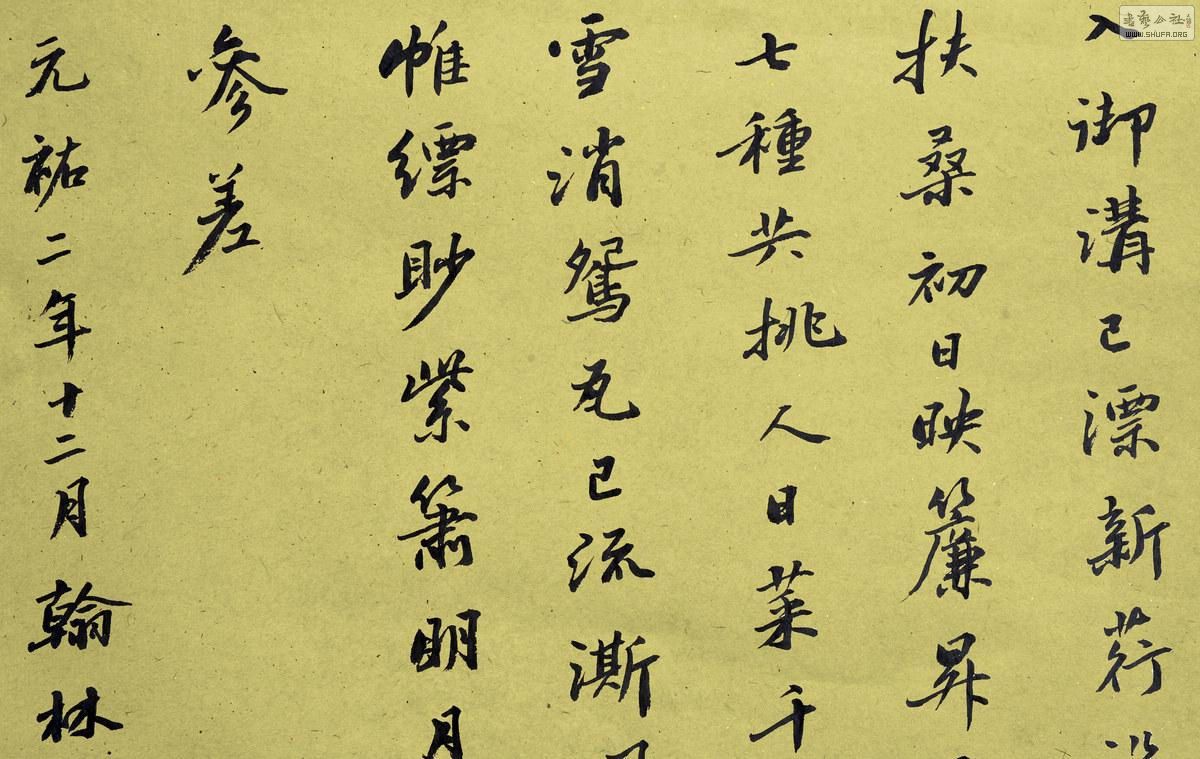 入御溝已漂新荇
扶桑初日映簾昇
七種共挑人日菜千
雪消鴛瓦已流澌
帷縹眇紫簫明月
參差
元祐二年十二月翰林
WWW.SHUFA.ORG